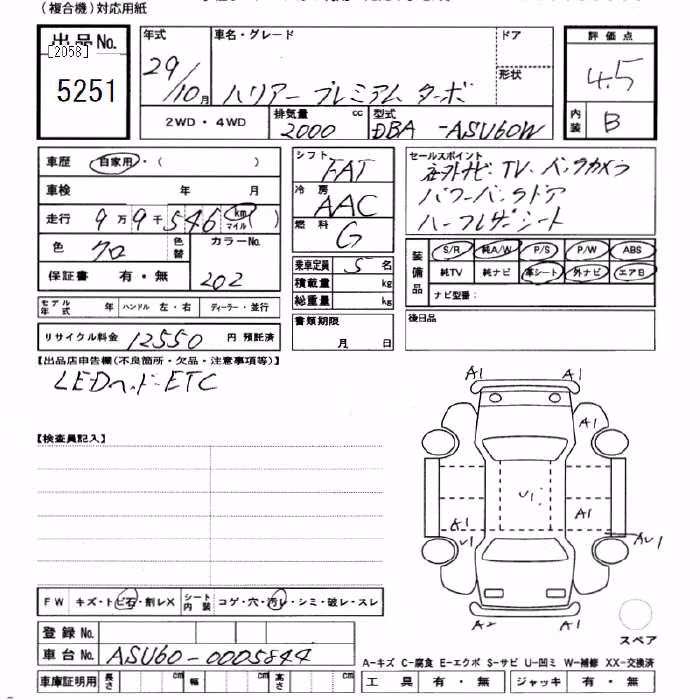 (複合機)対応用紙
出品No.
[2058]
5251
年式
29/10月
車名・グレード
ハリアー プレミアム ターボ
ドア
形状
評価点
4.5
内装
B
2WD・4WD
排気量
2000
cc
型式
DBA-ASU60W
車歴
自家用・( )
車検 年 月
走行 9万9千546 km マイル )
色 クロ
色替
カラーNo.
202
保証書 有・無
モデル年式 年
ハンドル 左・右
ディーラー・並行
リサイクル料金 12550 円 預託済
シフト
FAT
冷房
AAC
燃料
G
乗車定員 5 名
積載量 kg
総重量 kg
書類期限
月 日
セールスポイント
社外ナビ・TV・バックカメラ
パワーバックドア
ハーフレザーシート
装備品
S/R 純A/W P/S P/W ABS
純TV 純ナビ 革シート 外ナビ エアB
ナビ型番:
後日品
【出品店申告欄(不良箇所・欠品・注意事項等)】
LEDヘッド・ETC
【検査員記入】
A1 A1
A1
U1
A1
A1
U1
AU1
A2 A1
スペア
FW キズ・トビ石・割レX
シート内装 コゲ・穴・汚レ・シミ・破レ・スレ
登録No.
車台No. ASU60-0005844
A-キズ C-腐食 E-エクボ S-サビ U-凹ミ W-補修 XX-交換済
車庫証明用 長さ cm 幅 cm 高さ cm
工具 有・無
ジャッキ 有・無